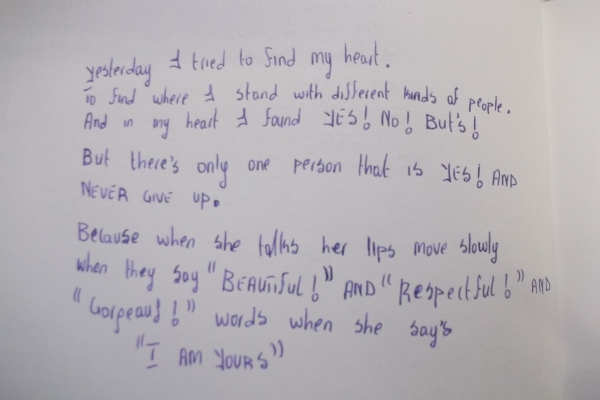 yesterday I tried to find my heart.
To find where I stand with different kinds of people.
And in my heart I found YES! No! But's!
But there's only one person that is YES! AND
NEVER GIVE up.
Because when she talks her lips move slowly
when they say "BEAUTIful!" AND "Respectful!" AND
"Gorgeous!" words when she say's
"I AM YOURS"